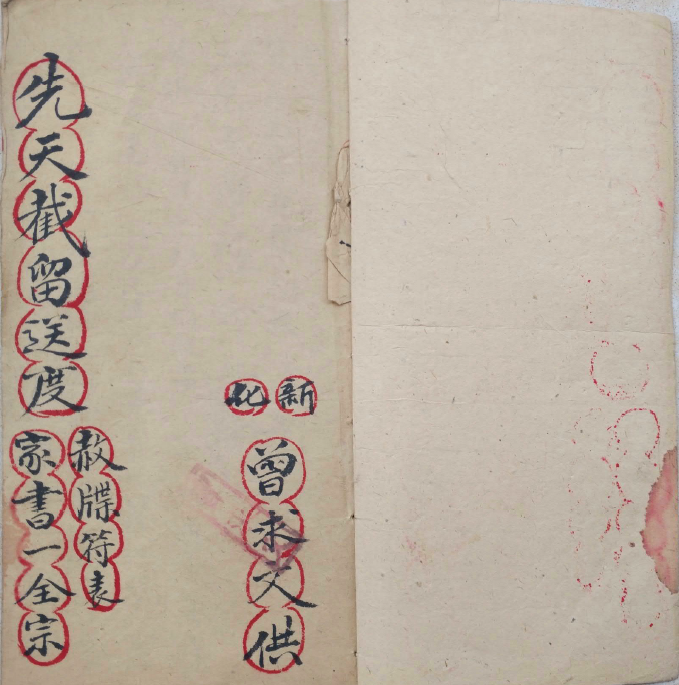 新化
曾求文供
先天截留送度
赦牒符表
家書一全宗